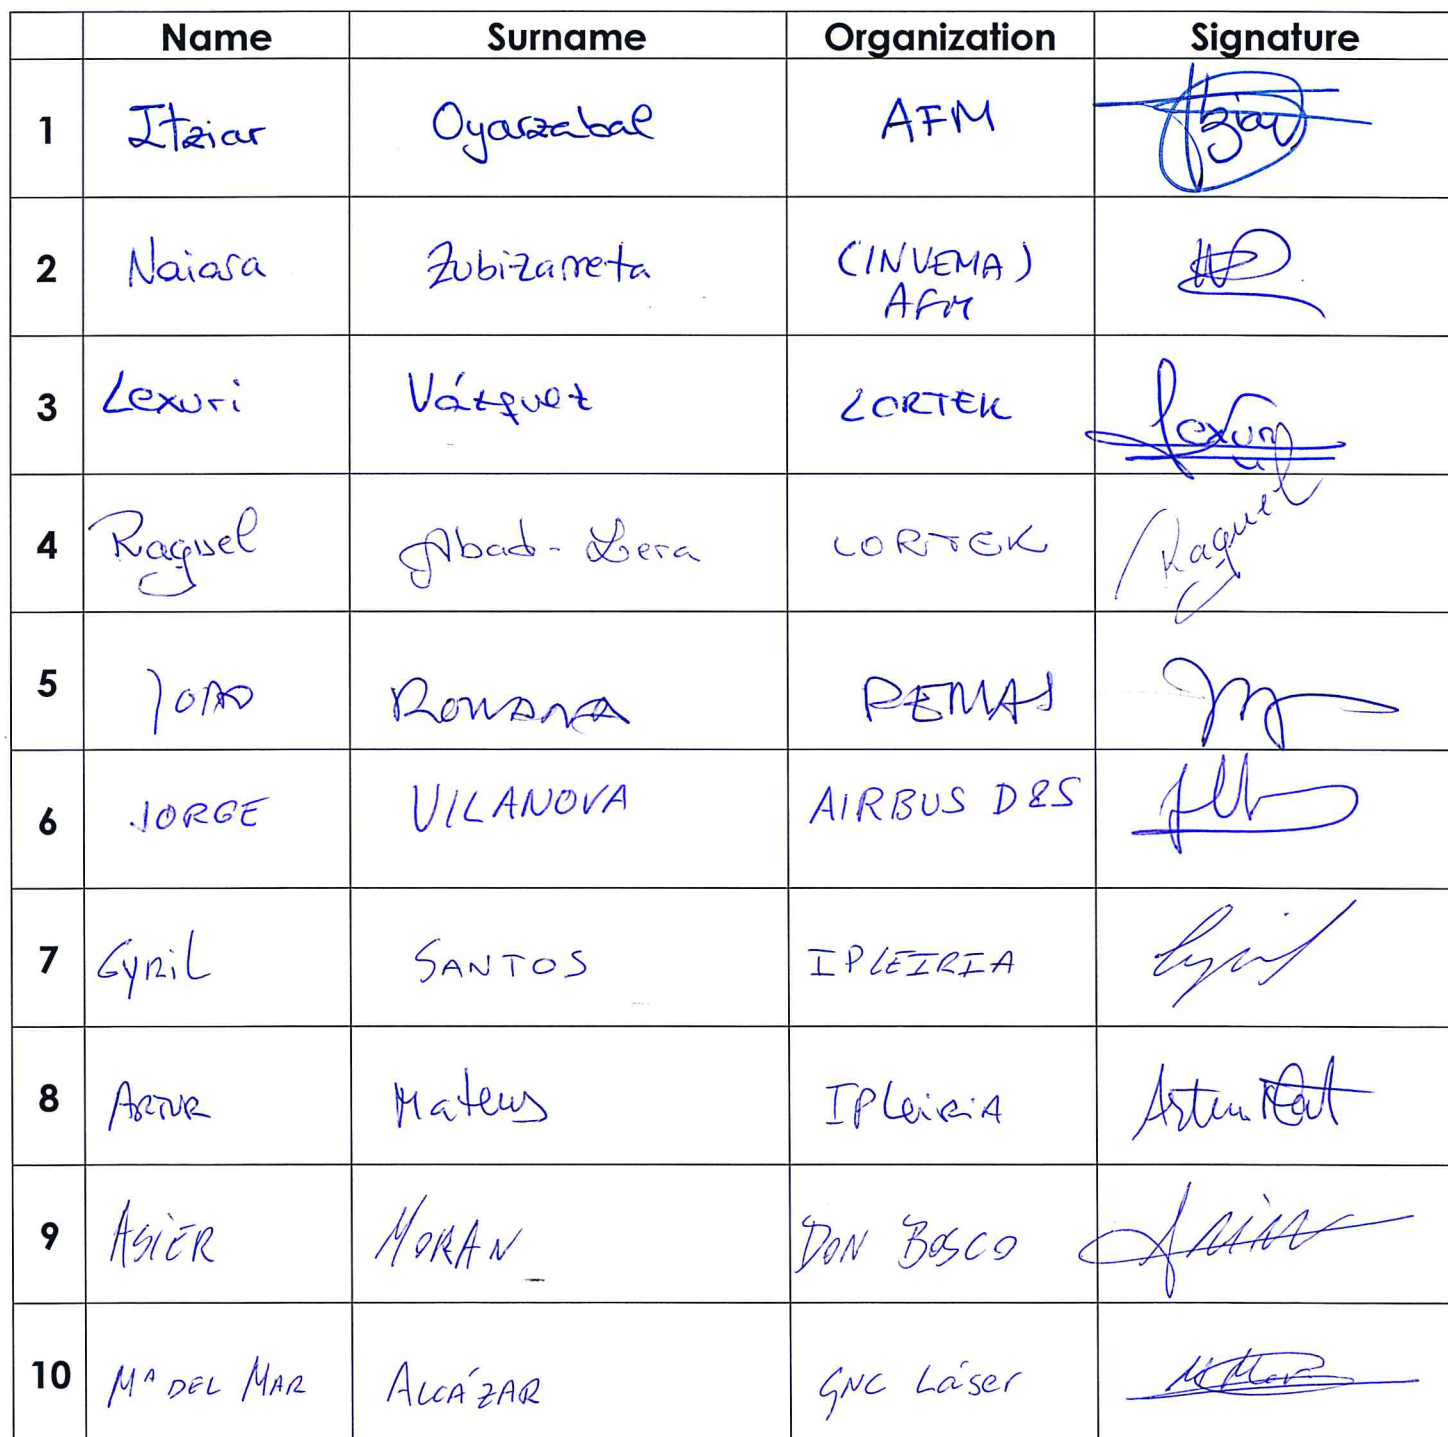 Name Surname Organization Signature
1 Itziar Oyarzabal AFM Itziar
2 Naiara Zubizarreta (INVEMA)
AFM
3 Lexuri Vázquez LORTEK Lexuri
4 Raquel Abad-Lera LORTEK Raquel
5 JOÃO ROMANA PEMAS
6 JORGE VILANOVA AIRBUS D&S
7 Cyril SANTOS IPLEIRIA Cyril
8 ARTUR Mateus IPLeiRiA Artur Mat
9 ASIER MORAN DON BOSCO
10 Mª DEL MAR ALCÁZAR GNC Láser